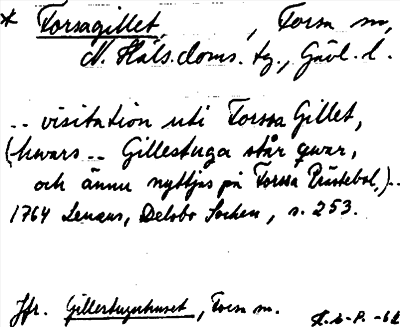 * Forsagillet, , Forsa sn,
N. Häls. doms. tg., Gävl. l.
.. visitation uti Forssa Gillet,
(hwars .. Gillestuga står qwar,
och ännu nyttjas på Forssa Prästebol,) ..
1764 Lenæus, Delsbo Socken, s. 253.
Jfr. Gillestuguhuset, Forsa sn.